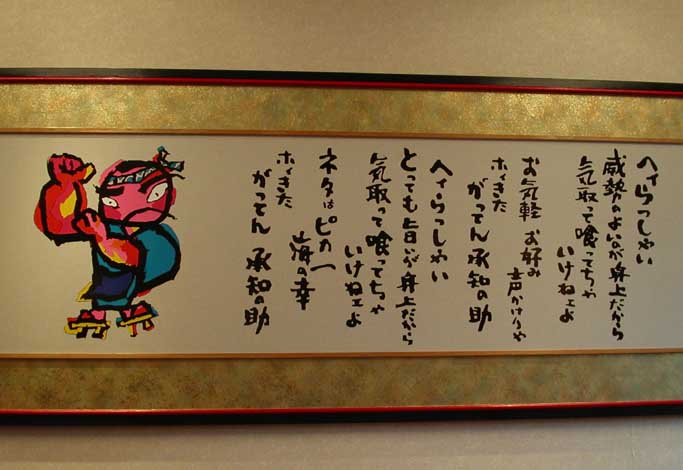 ヘイらっしゃい
威勢のよいのが身上だから
気取って喰ってちゃ
いけねェよ
お気軽 お好み
声かけりゃ
ホイきた
がってん 承知の助
ヘイらっしゃい
とっても旨いが身上だから
気取って喰ってちゃ
いけねェよ
ネタは ピカ一
海の幸
ホイきた
がってん 承知の助